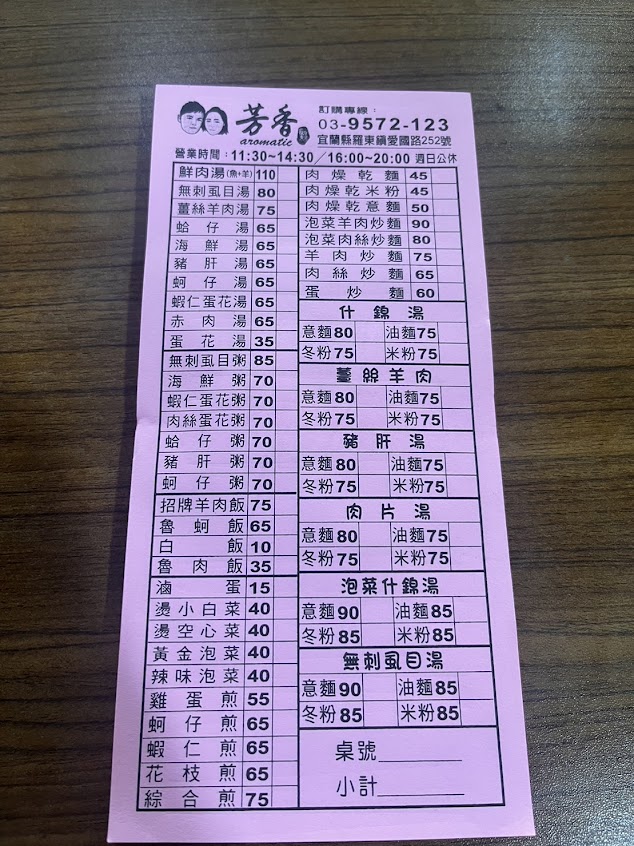 芳香
aromatic
訂購專線：
03-9572-123
宜蘭縣羅東鎮愛國路252號
營業時間：11:30~14:30／16:00~20:00 週日公休
鮮肉湯(魚+羊) 110
無刺虱目湯 80
薑絲羊肉湯 75
蛤仔湯 65
海鮮湯 65
豬肝湯 65
蚵仔湯 65
蝦仁蛋花湯 65
赤肉湯 65
蛋花湯 35
無刺虱目粥 85
海鮮粥 70
蝦仁蛋花粥 70
肉絲蛋花粥 70
蛤仔粥 70
豬肝粥 70
蚵仔粥 70
招牌羊肉飯 75
魯蚵飯 65
白飯 10
魯肉飯 35
滷蛋 15
燙小白菜 40
燙空心菜 40
黃金泡菜 40
辣味泡菜 40
雞蛋煎 55
蚵仔煎 65
蝦仁煎 65
花枝煎 65
綜合煎 75
肉燥乾麵 45
肉燥乾米粉 45
肉燥乾意麵 50
泡菜羊肉炒麵 90
泡菜肉絲炒麵 80
羊肉炒麵 75
肉絲炒麵 65
蛋炒麵 60
什錦湯
意麵 80 油麵 75
冬粉 75 米粉 75
薑絲羊肉
意麵 80 油麵 75
冬粉 75 米粉 75
豬肝湯
意麵 80 油麵 75
冬粉 75 米粉 75
肉片湯
意麵 80 油麵 75
冬粉 75 米粉 75
泡菜什錦湯
意麵 90 油麵 85
冬粉 85 米粉 85
無刺虱目湯
意麵 90 油麵 85
冬粉 85 米粉 85
桌號________
小計________